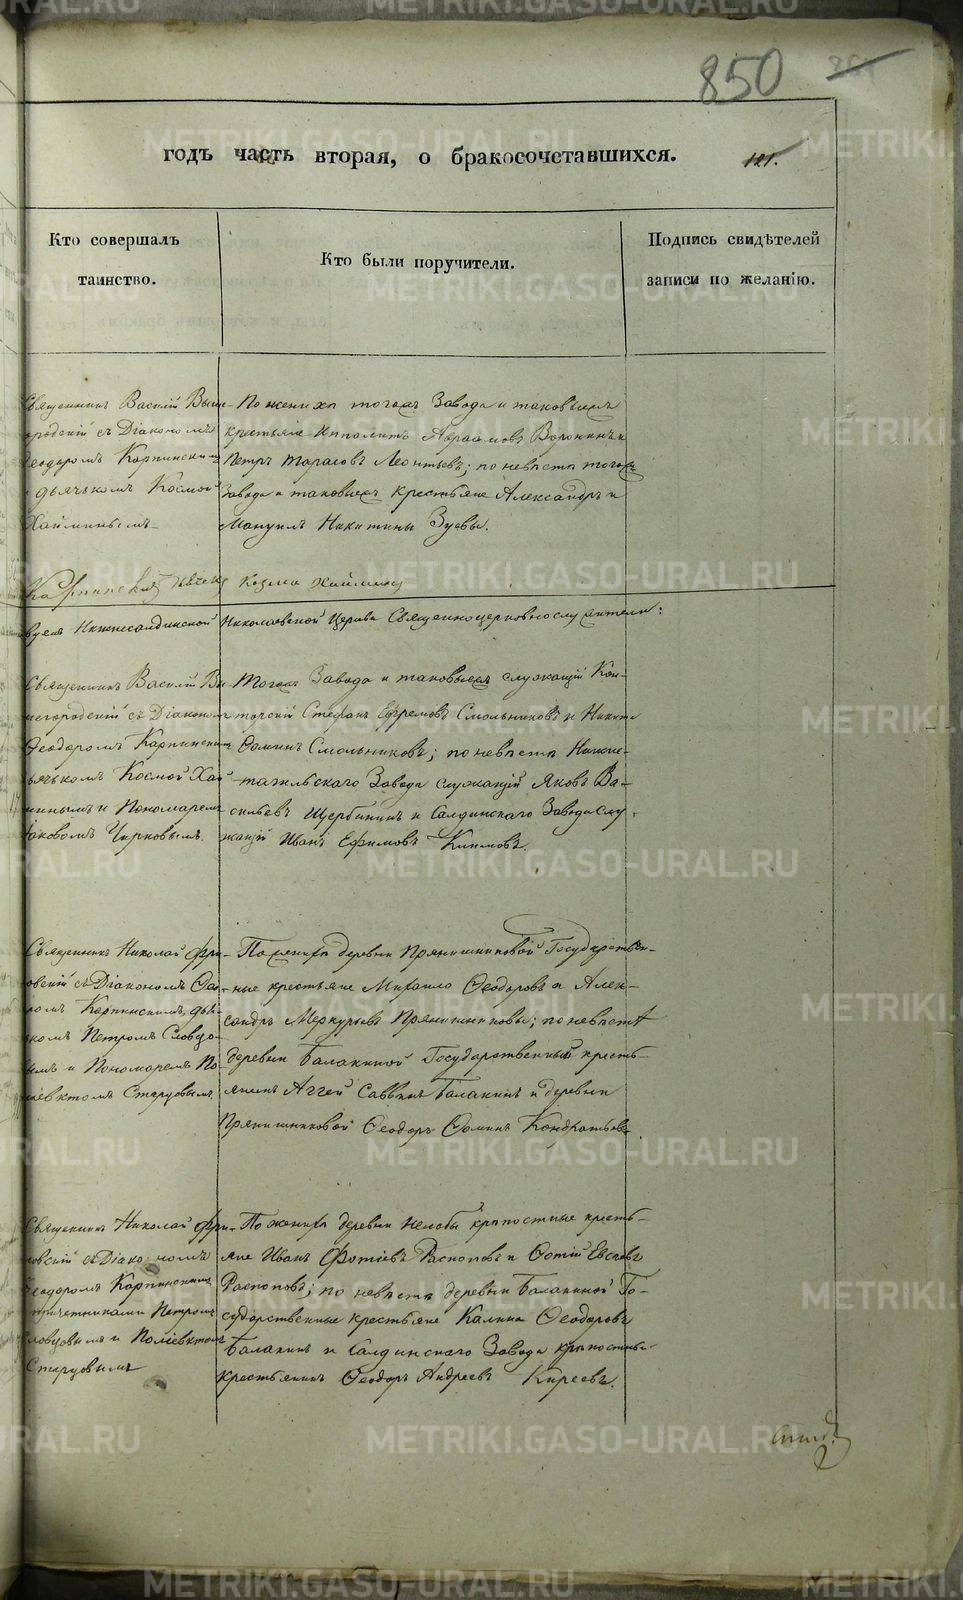 850
годъ часть вторая, о бракосочетавшихся.
121.
Кто совершалъ
таинство.
Кто были поручители.
Подпись свидѣтелей
записи по желанію.
Священникъ Василій Выше-
городскій съ Діакономъ
Ѳеодоромъ Карпинскимъ
и дьячькомъ Космой
Хайминымъ
По женихѣ тогожъ Завода и таковыежъ
крестьяне Ипполитъ Абрамовъ Воронинъ и
Петръ Тарасовъ Леонтьевъ; по невѣстѣ тогожъ
Завода и таковыежъ крестьяне Александръ и
Мануилъ Никитины Зуевы.
Карпинскій дьячекъ Козма Хайминъ
Нижнесалдинской Николаевской Церкви Священноцерковнослужители:
Священникъ Василій Вы-
шегородскій съ Діакономъ
Ѳеодоромъ Карпинскимъ
дьячькомъ Космой Хай-
минымъ и Пономаремъ
Іаковомъ Чирковымъ
Тогожъ Завода и таковыежъ служащій Кон-
торскій Стефанъ Ефремовъ Смольниковъ и Никита
Ѳоминъ Смольниковъ; по невѣстѣ Нижне-
тагильскаго Завода служащій Яковъ Ва-
сильевъ Щербининъ и Салдинскаго Завода слу-
жащій Иванъ Ефимовъ Климовъ.
Священникъ Николай
съ Діакономъ Ѳео-
доромъ Карпинскимъ, дья-
комъ Петромъ Словцо-
вымъ и Пономаремъ По-
ліевктомъ Старцовымъ
По женихѣ деревни Прянишниковой Государствен-
ные крестьяне Михаило Ѳеодоровъ и Алек-
сандръ Меркурьевъ Прянишниковы; по невѣстѣ
деревни Балакиной Государственный кресть-
янинъ Аггей Саввинъ Балакинъ и деревни
Прянишниковой Ѳеодоръ Ѳоминъ Кондратьевъ.
Священникъ Николай
съ Діакономъ
Ѳеодоромъ Карпинскимъ
причетниками Петромъ
Словцовымъ и Поліевктомъ
Старцовымъ
По женихѣ деревни Нелобы крѣпостные кресть-
яне Иванъ Фотіевъ Распоповъ и Ѳотій Евсѣевъ
Распоповъ; по невѣстѣ деревни Балакиной Го-
сударственные крестьяне Калина Ѳеодоровъ
Балакинъ и Салдинскаго Завода крѣпостный
крестьянинъ Ѳеодоръ Андреевъ Киреевъ.
METRIKI.GASO-URAL.RU